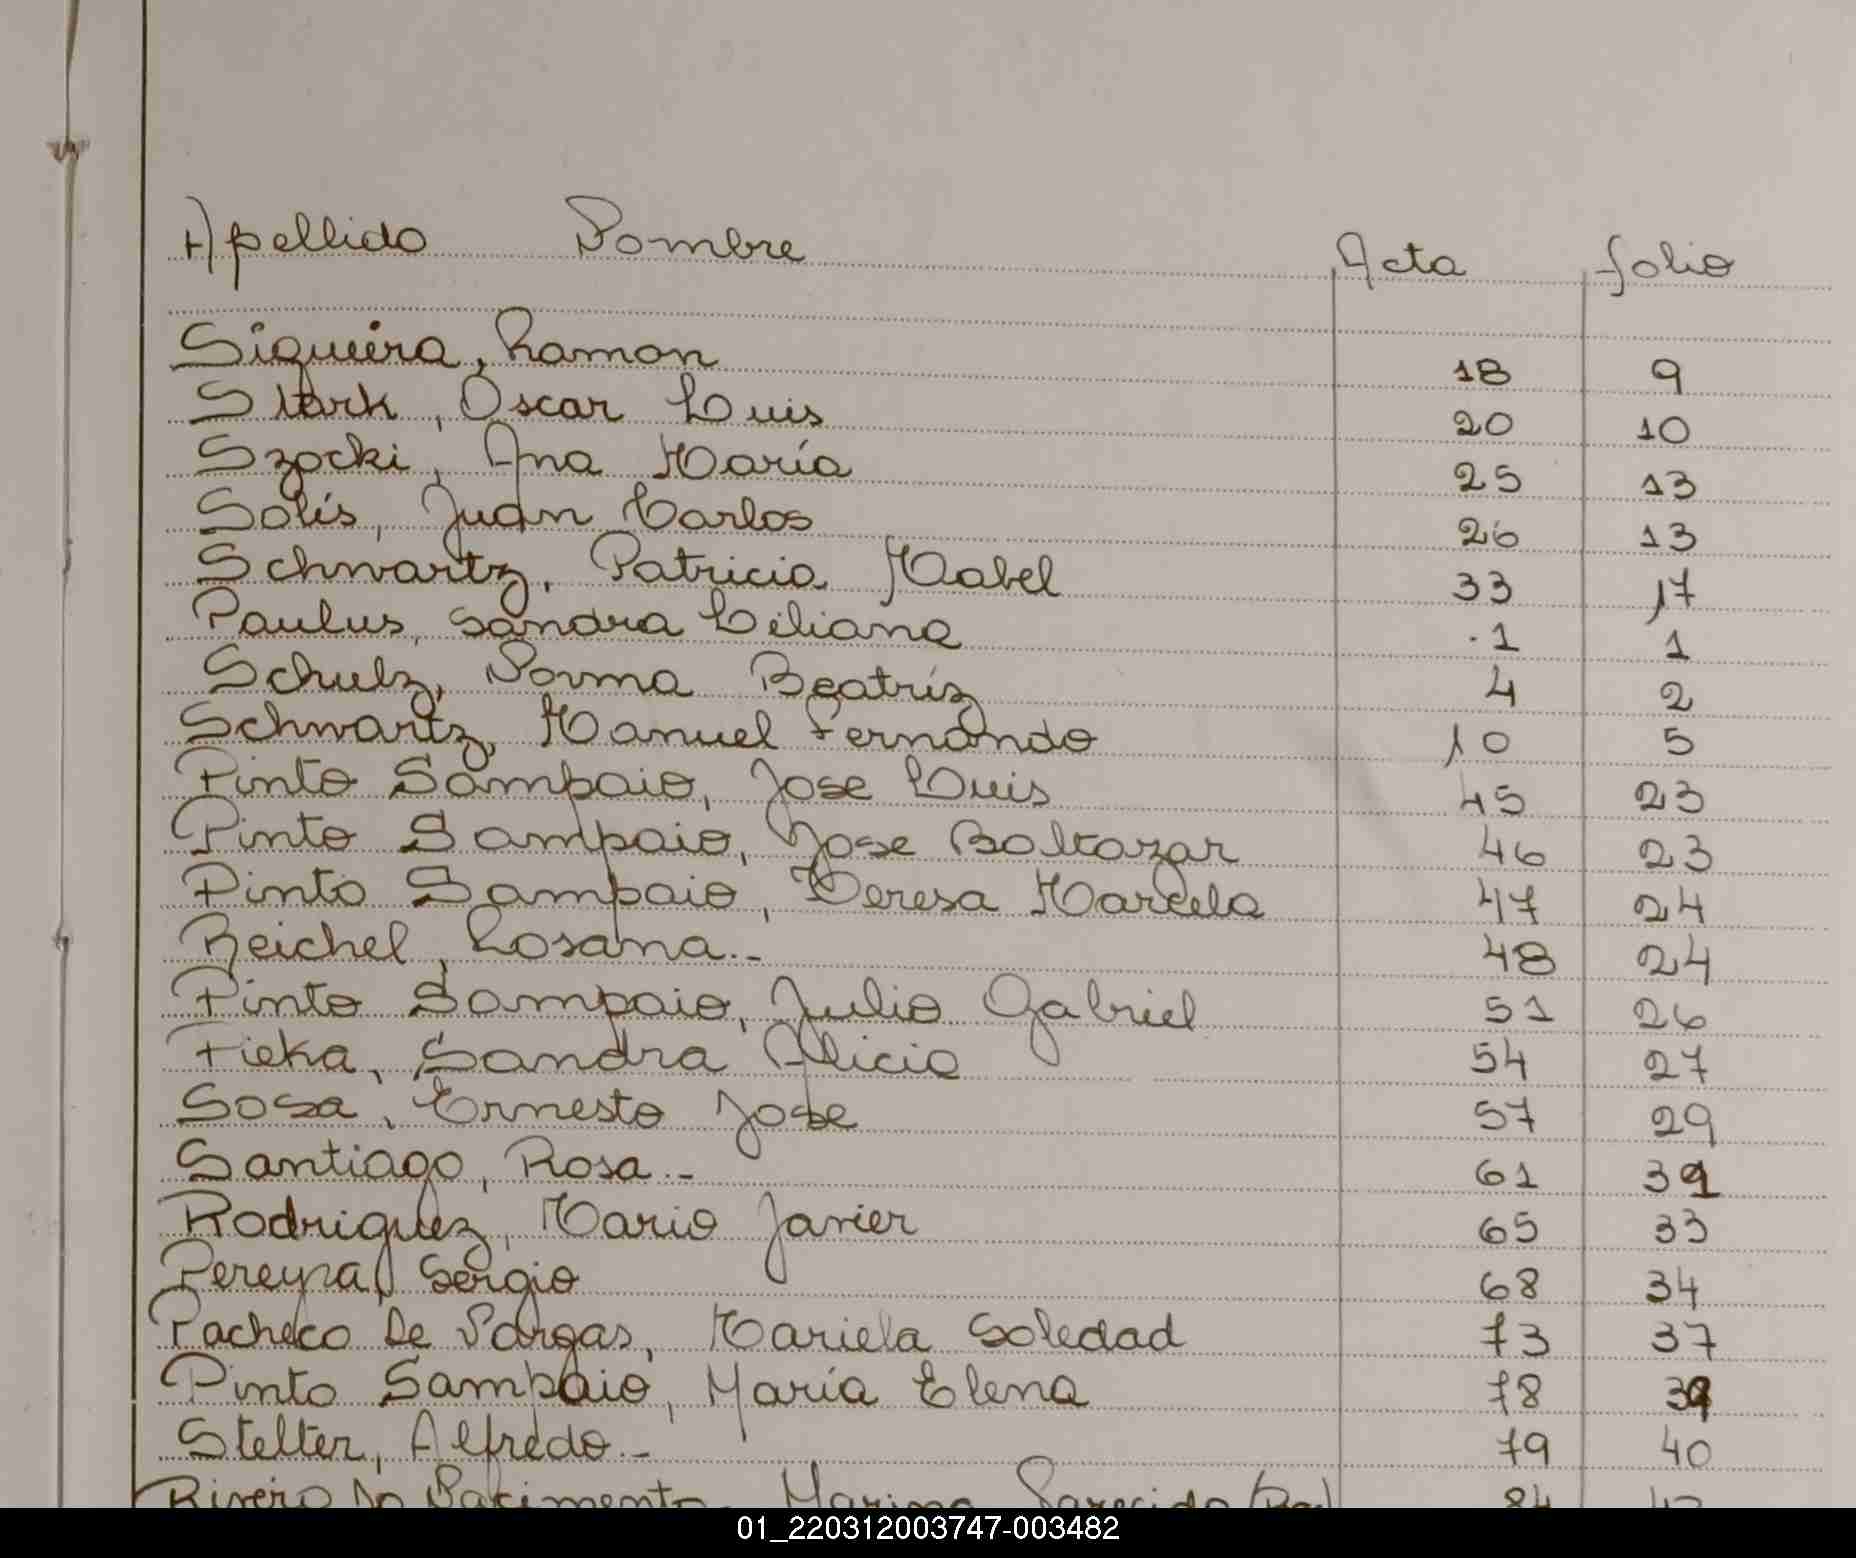 Apellido Nombre Acta folio
Siqueira, Ramon 18 9
Stark, Oscar Luis 20 10
Szocki, Ana María 25 13
Solís, Juan Carlos 26 13
Schwartz, Patricia Mabel 33 17
Paulus, Sandra Liliana 1 1
Schulz, Norma Beatríz 4 2
Schwartz, Manuel Fernando 10 5
Pinto Sampaio, Jose Luis 45 23
Pinto Sampaio, Jose Baltazar 46 23
Pinto Sampaio, Teresa Marcela 47 24
Reichel, Rosana.- 48 24
Pinto Sampaio, Julio Gabriel 51 26
Fieka, Sandra Alicia 54 27
Sosa, Ernesto Jose 57 29
Santiago, Rosa.- 61 31
Rodriguez, Mario Javier 65 33
Pereyra, Sergio 68 34
Pacheco De Vargas, Mariela Soledad 73 37
Pinto Sampaio, María Elena 78 39
Stelter, Alfredo.- 79 40
Rivero Do Nacimento, Marina 84
01_220312003747-003482